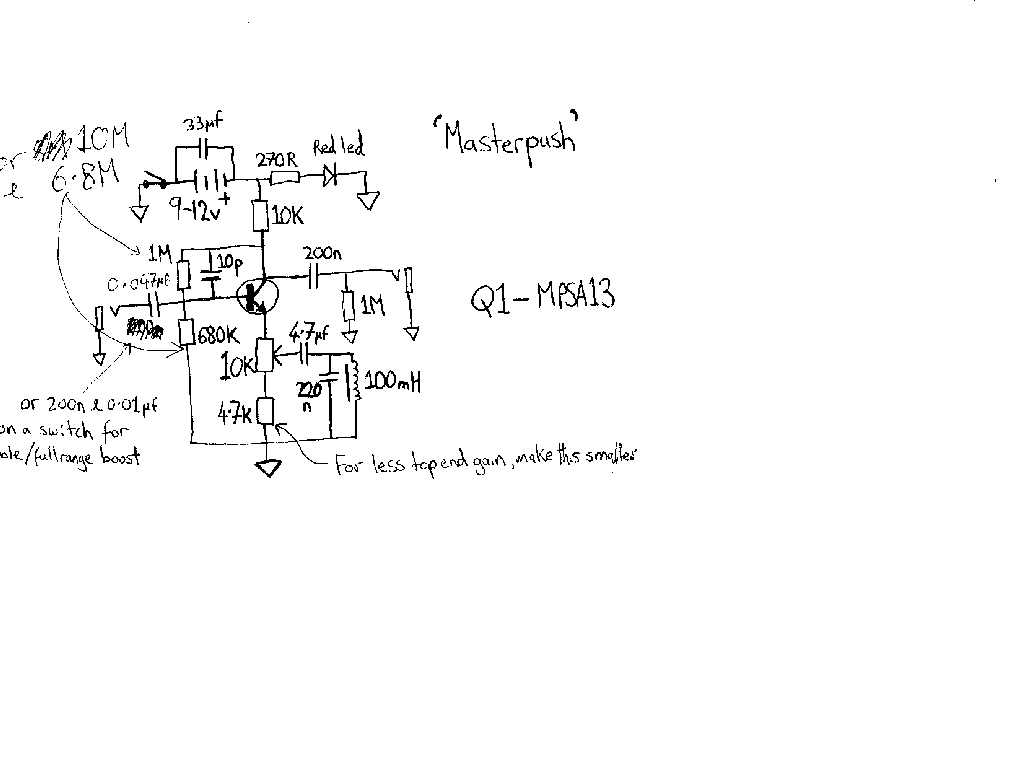 'Masterpush'
33µf
or 10M
& 6.8M
270R
Red led
9-12v +
10K
1M
10p
200n
0.047µf
1M
Q1-MPSA13
680K
4.7µf
10K
220n
100mH
4.7K
or 200n & 0.01µf
on a switch for
/fullrange boost
For less top end gain, make this smaller